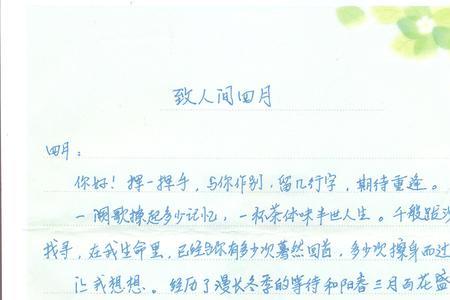 致人间四月
四月：
你好！挥一挥手，与你作别，留几行字，期待重逢。
一阕歌撩起多少记忆，一杯茶体味半世人生。千般
找寻，在我生命里，已经与你有多少次蓦然回首，多少次擦身而过
让我想想。经历了漫长冬季的等待和阳春三月雨花盛